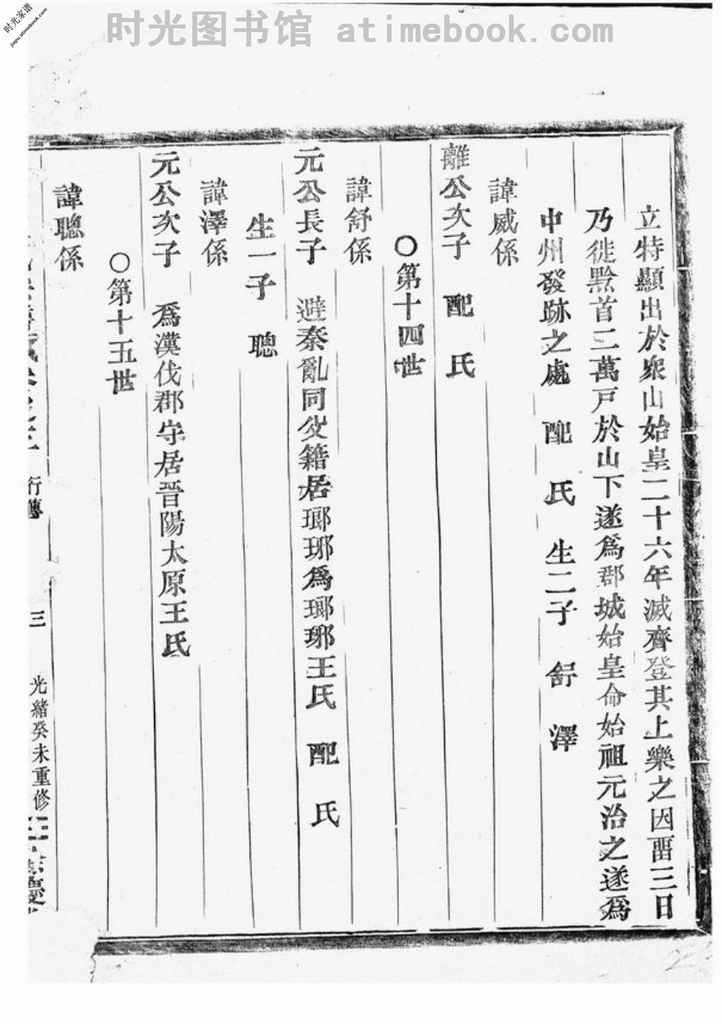 时光图书馆 atimebook.com
时光家谱
jiapu.atimebook.com
立特顯出於衆山始皇二十六年滅齊登其上樂之因畱三日
乃徙黔首二萬戸於山下遂爲郡城始皇命始祖元治之遂爲
中州發跡之處 配 氏 生二子 舒 澤
諱威係
離公次子 配 氏
○第十四世
諱舒係
元公長子 避秦亂同父籍居瑯琊爲瑯琊王氏 配 氏
生一子 聰
諱澤係
元公次子 爲漢伐郡守居晋陽太原王氏
○第十五世
諱聰係
行傳 三 光緒癸未重修